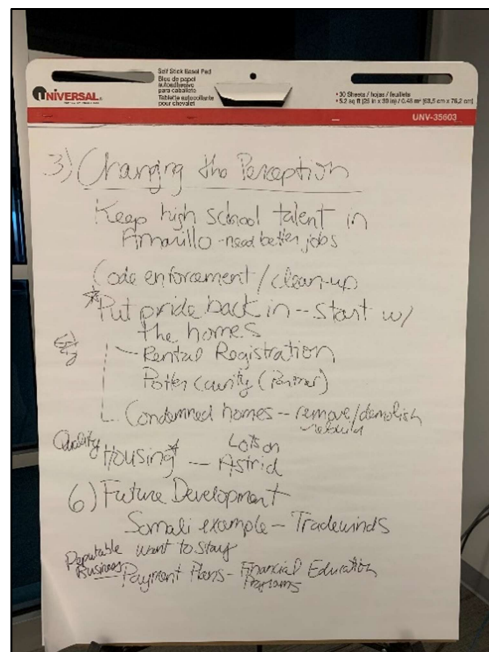 UNIVERSAL®
Self Stick Easel Pad
Bloc de papel
autoadhesivo
para caballete
Tablette autocollante
pour chevalet
• 30 Sheets / hojas / feuillets
UNV-35603
3) Changing the Perception
Keep high school talent in
Amarillo - need better jobs
Code enforcement / clean-up
*Put pride back in -- start w/
the homes
- Rental Registration
Potter county
Condemned homes -- remove/demolish
rebuild
Quality Housing* -- Lots on
Astrid
6) Future Development
Somali example - Tradewinds
want to stay
Reputable
Business
Payment Plans - Financial Education
Programs